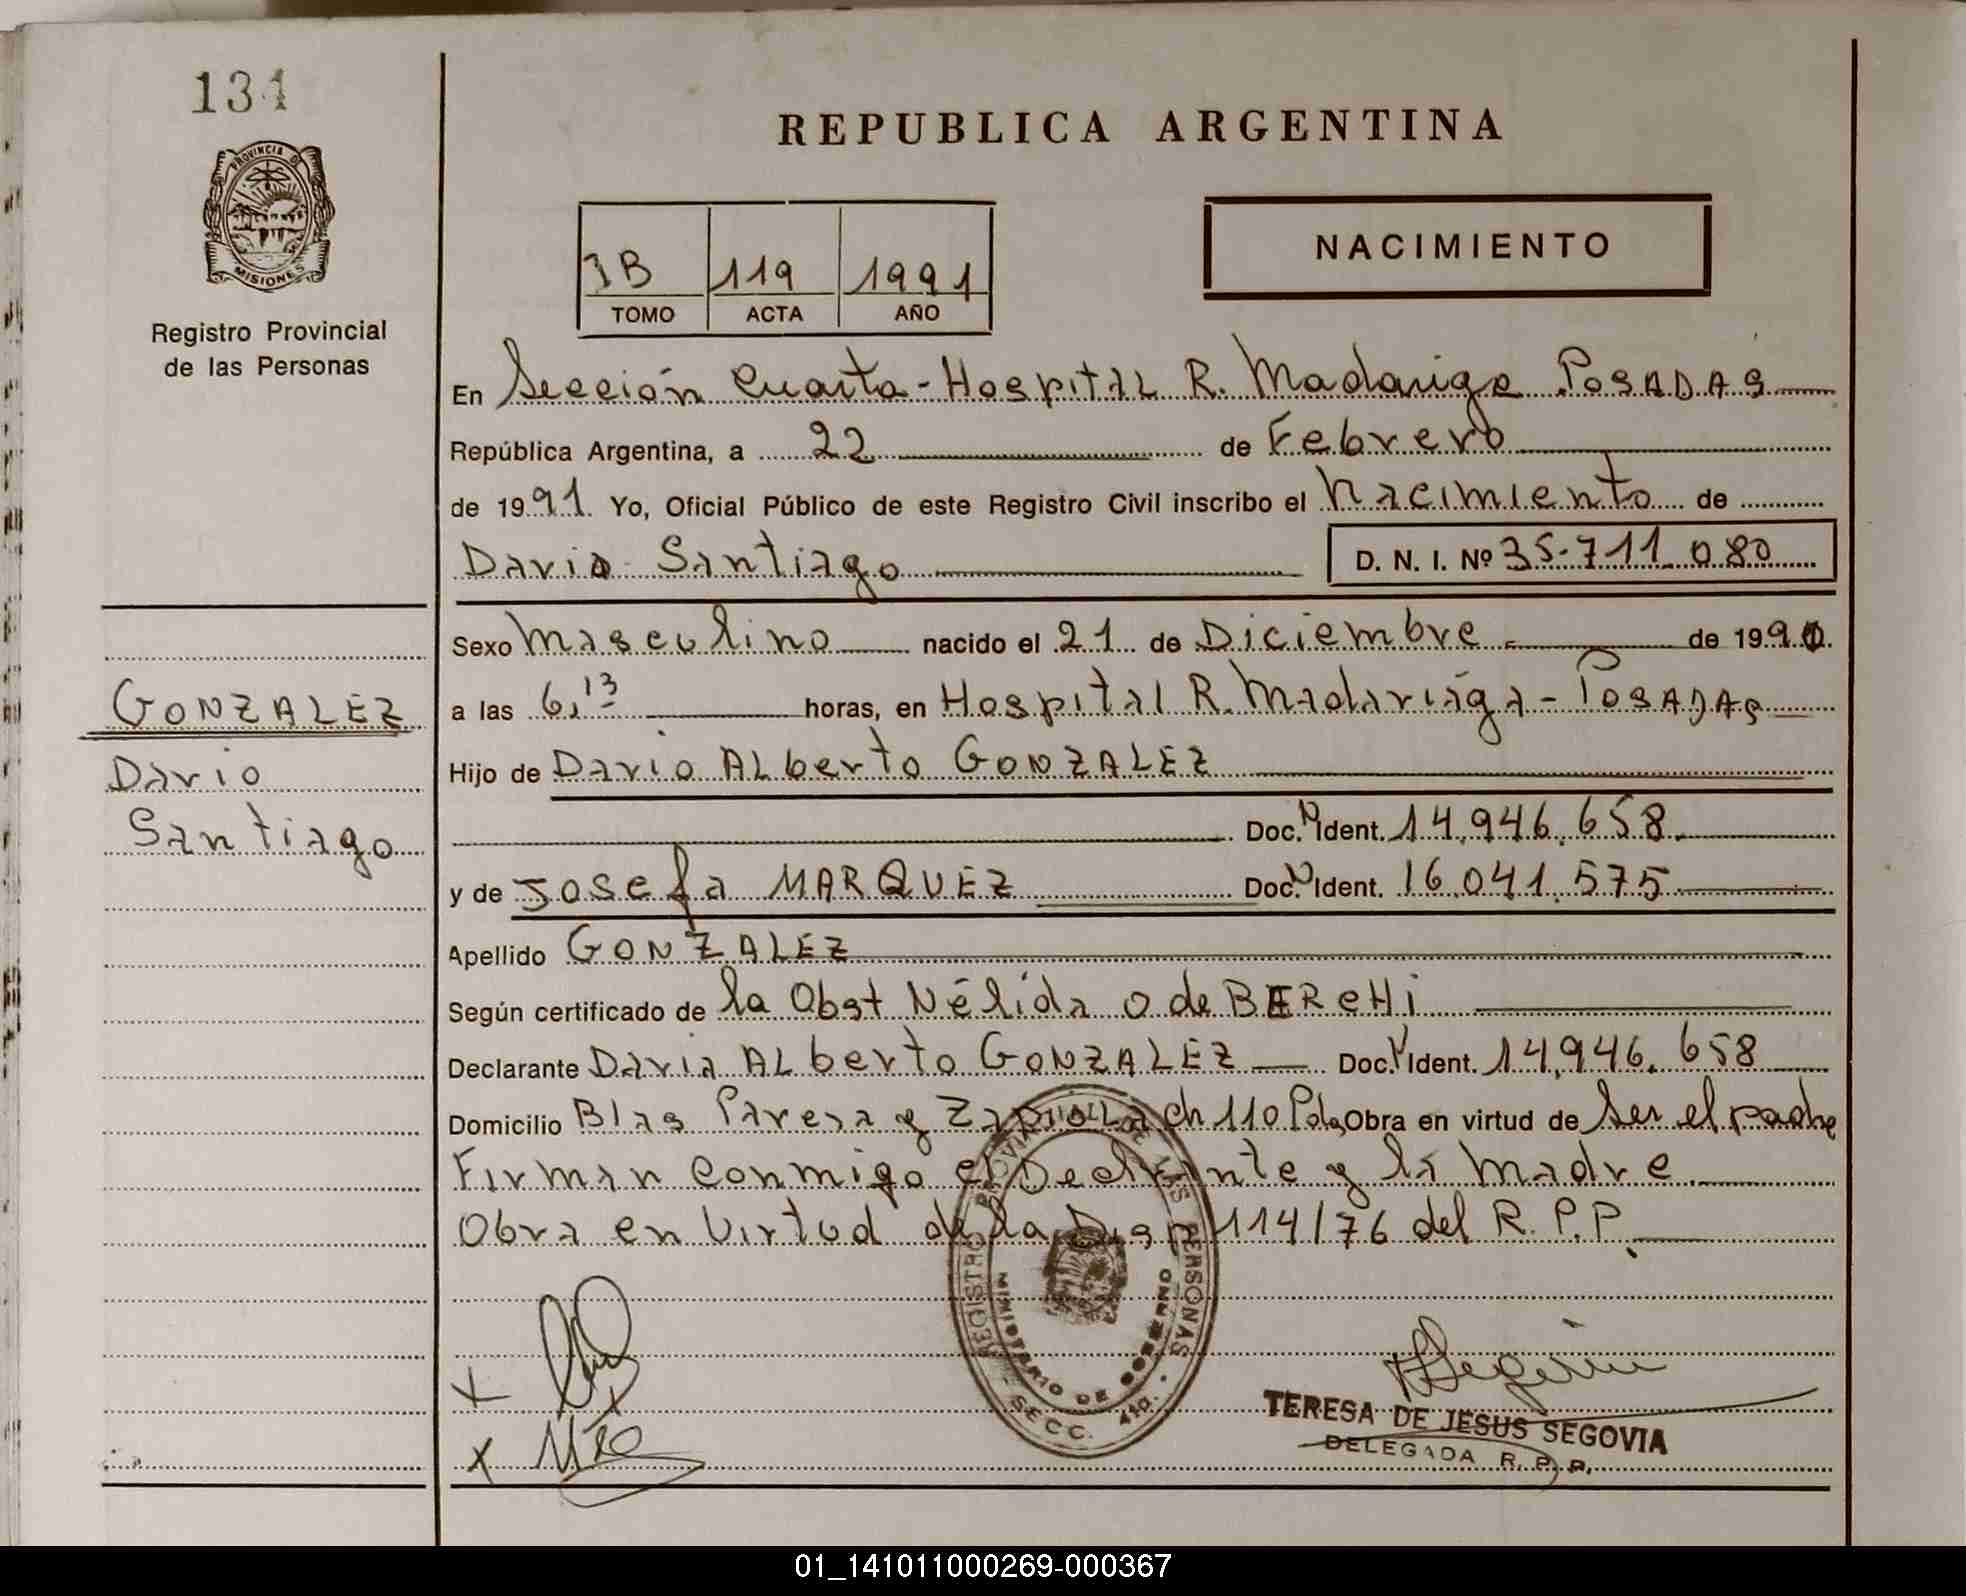 134
PROVINCIA DE
MISIONES
Registro Provincial
de las Personas
GONZALEZ
Dario
Santiago
REPUBLICA ARGENTINA
NACIMIENTO
IB 119 1991
TOMO ACTA AÑO
En Sección Cuarta - Hospital R. Madariaga Posadas
República Argentina, a 22 de Febrero
de 1991 Yo, Oficial Público de este Registro Civil inscribo el Nacimiento de
Dario Santiago D. N. I. Nº 35.711.080
Sexo Masculino nacido el 21 de Diciembre de 1990.
a las 6,13 horas, en Hospital R. Madariaga - Posadas
Hijo de Dario Alberto GONZALEZ
Doc. N Ident. 14.946.658.
y de Josefa MARQUEZ Doc. N Ident. 16.041.575
Apellido GONZALEZ
Según certificado de la Obst Nélida O de
Declarante Dario Alberto GONZALEZ Doc. N Ident. 14.946.658
Domicilio Blas Parera y Zapiola ch 110 Pdas Obra en virtud de Ser el padre
Firman conmigo el Declarante y la madre
Obra en Virtud de la Disp 114/76 del R.P.P.
REGISTRO PROVINCIAL DE LAS PERSONAS
MINISTERIO DE GOBIERNO
SECC. 4ta.
TERESA DE JESUS SEGOVIA
DELEGADA R. P. P.
01_141011000269-000367